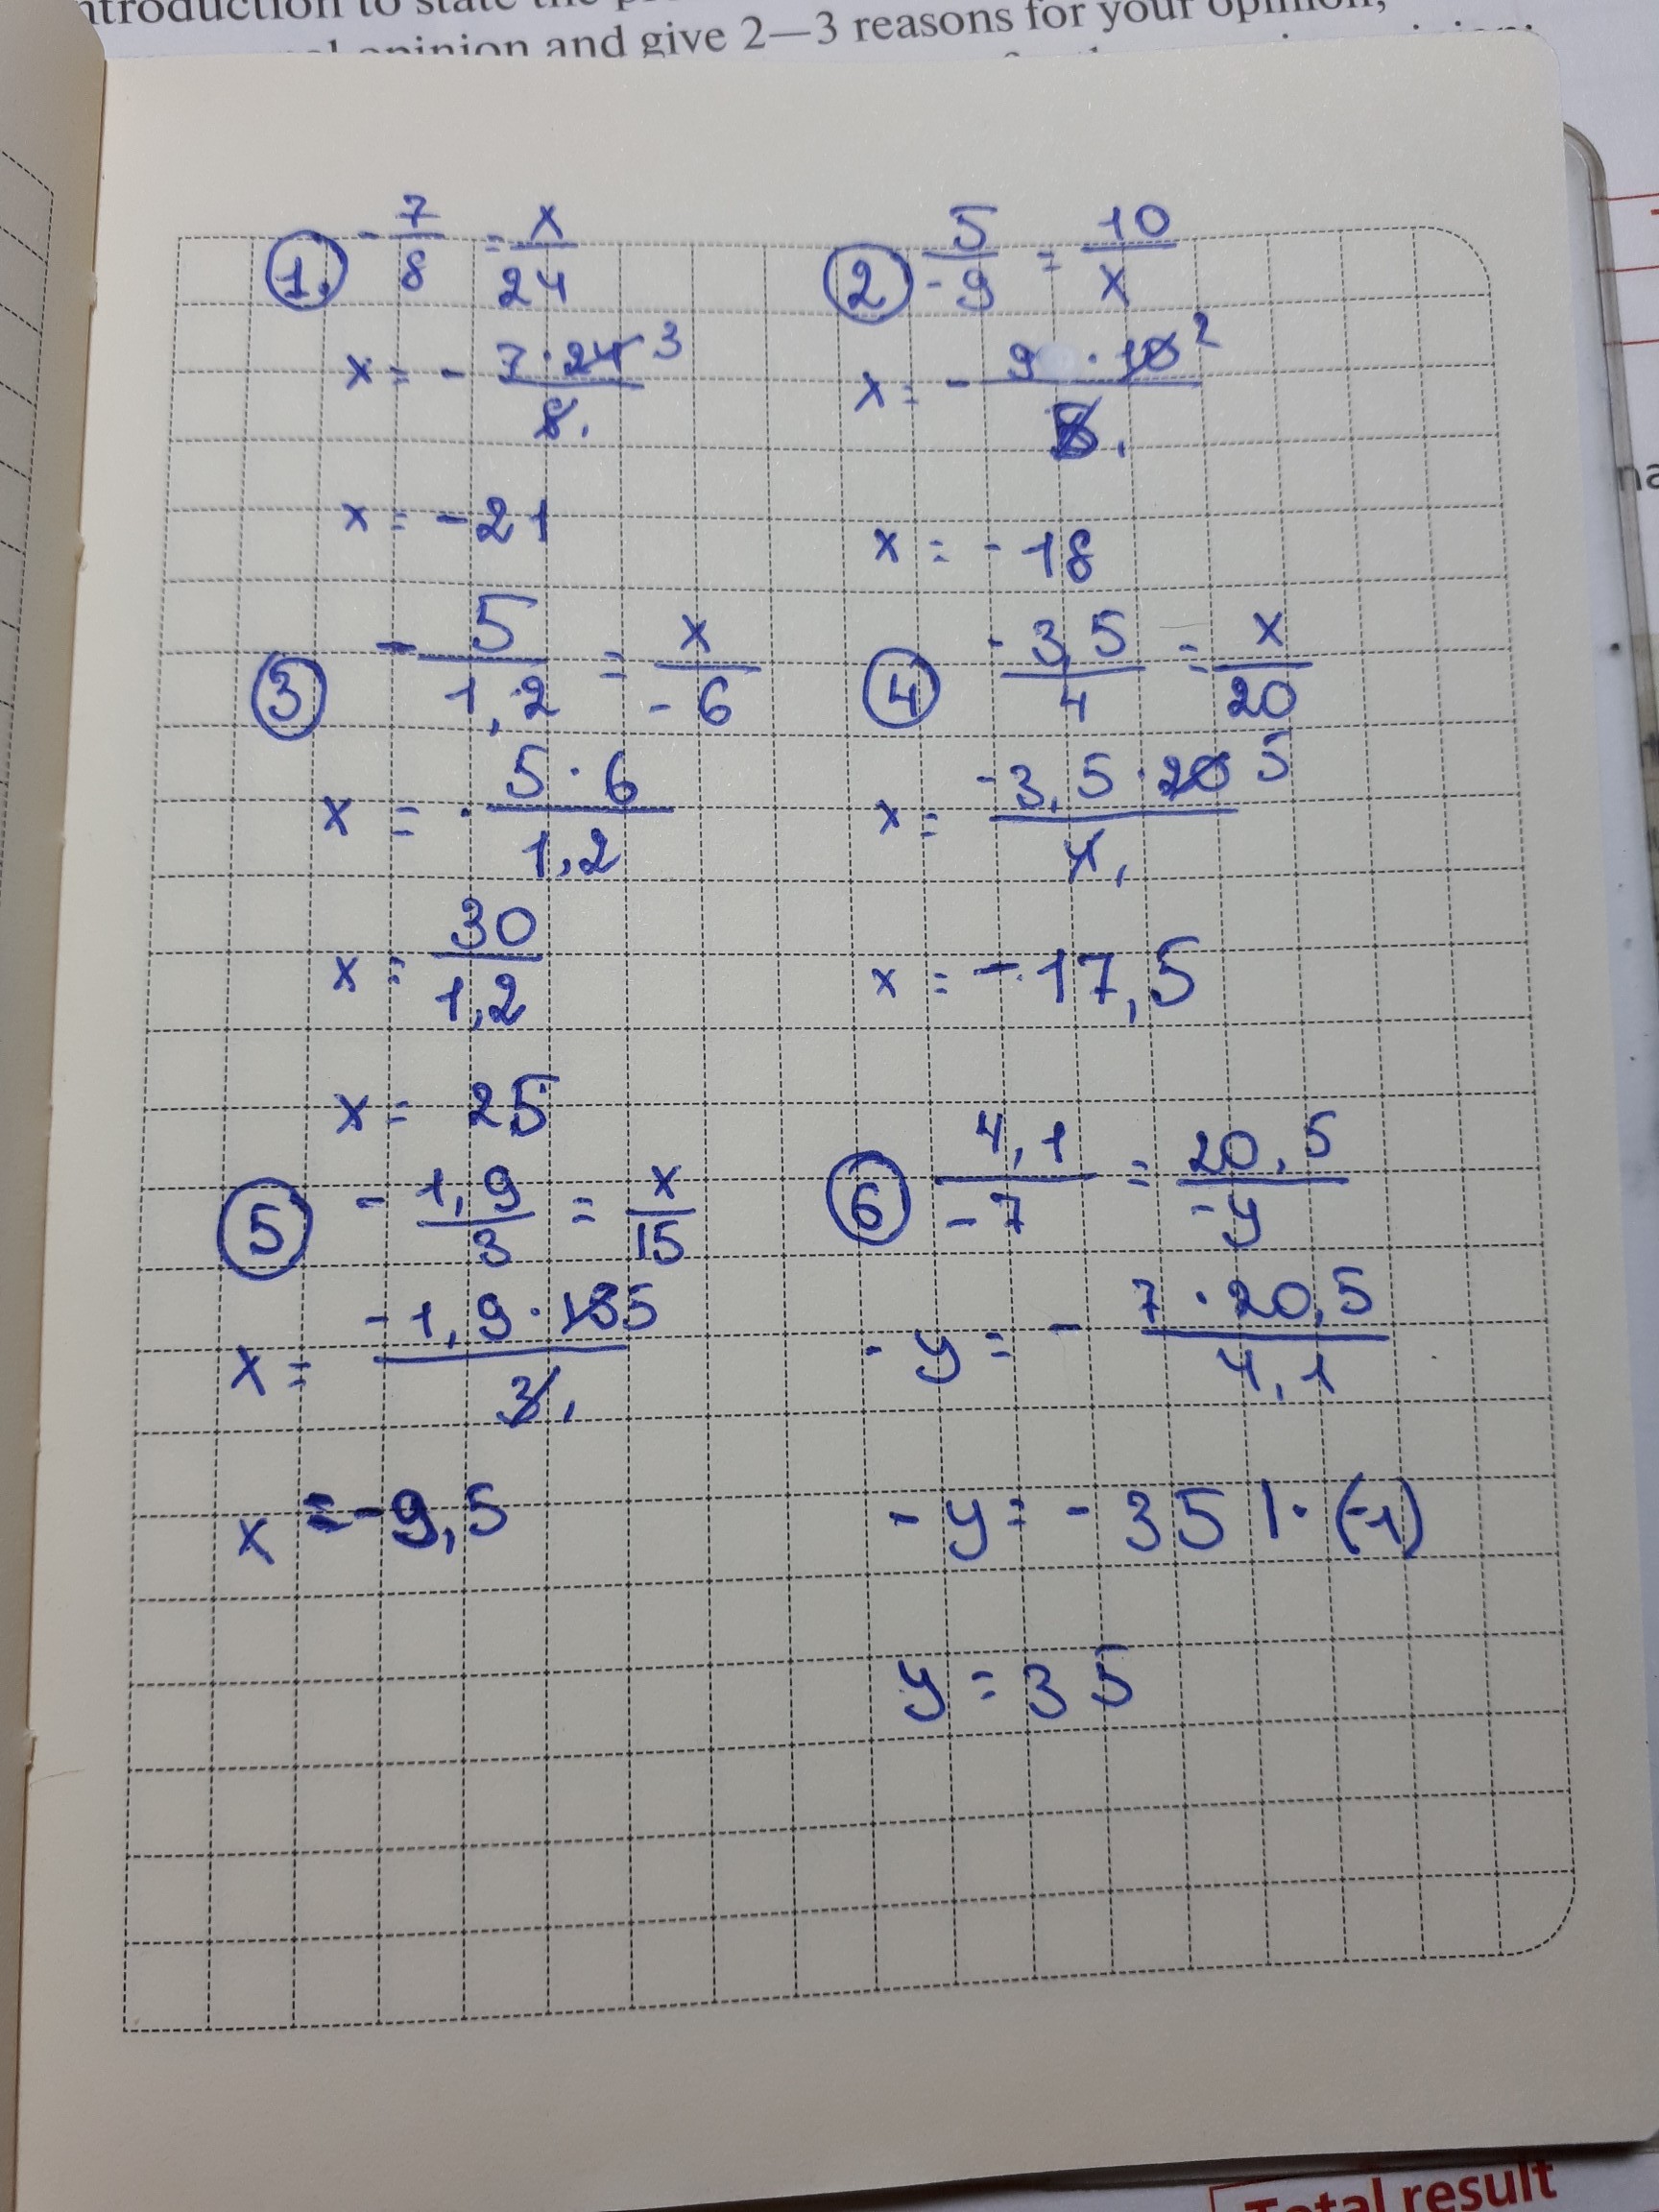 ntroduction to state the
opinion and give 2—3 reasons for your opinion,
1. - 7/8 = x/24
x = - 7 · 24 3 / 8 1
x = -21
2 5/-9 = 10/x
x = - 9 · 10 2 / 5 1
x = -18
3 - 5/1,2 = x/-6
x = - 5 · 6 / 1,2
x = 30/1,2
x = 25
4 -3,5/4 = x/20
x = -3,5 · 20 5 / 4 1
x = -17,5
5 - 1,9/3 = x/15
x = -1,9 · 15 5 / 3 1
x = -9,5
6 4,1/-7 = 20,5/-y
-y = - 7 · 20,5 / 4,1
-y = -35 | · (-1)
y = 35
Total result